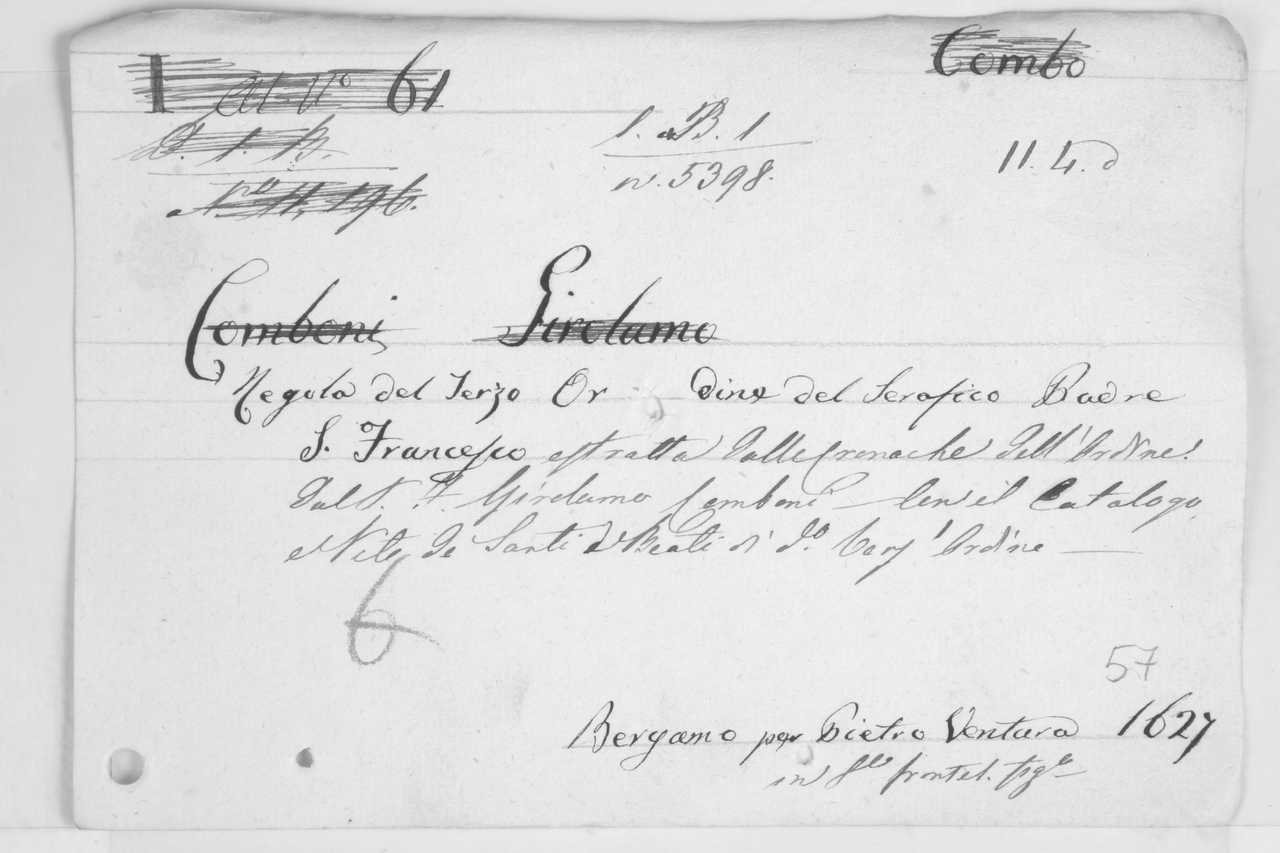 I Al Nº 61
Combo
1. B. 1
n. 5398.
11. 4.
Comboni Girolamo
Regola del Terzo Or dine del Serafico Padre
S. Francesco estratta dalle Cronache dell'Ordine.
Dal P. F. Girolamo Comboni Con il Catalogo
e Vite de Santi e Beati di d.º Terz'Ordine
6
57
Bergamo per Pietro Ventura 1627
in 8.º frontes. fig.º